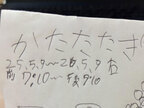 かたたたき
25,5,9～26,5,9
前7:10～後9:10